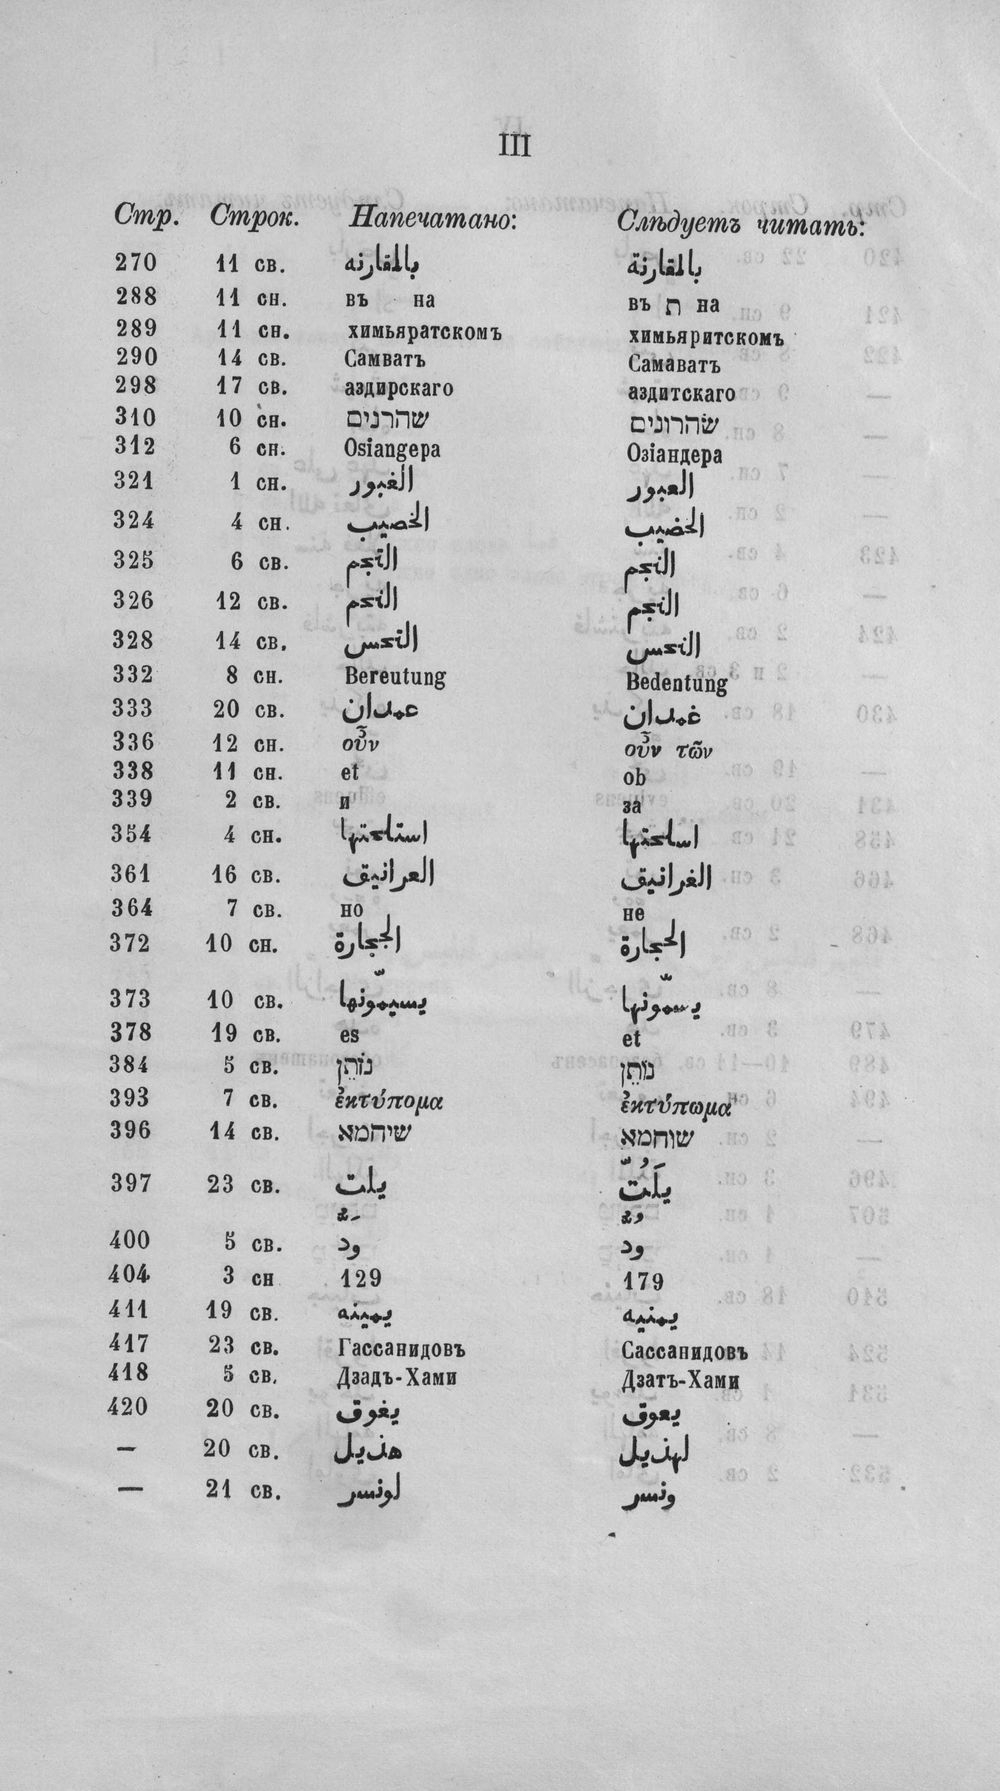 III
Стр. Строк. Напечатано: Слѣдуетъ читать:
270 11 св. بالمقارنه بالمقارنة
288 11 сн. въ на въ ת на
289 11 сн. химьяратскомъ химьяритскомъ
290 14 св. Самватъ Самаватъ
298 17 св. аздирскаго аздитскаго
310 10 сн. שהרנים שׂהרונים
312 6 сн. Osiangера Озіандера
321 1 сн. الغبور العبور
324 4 сн. الخصيب الخضيب
325 6 св. التجم النجم
326 12 св. التجم النجم
328 14 св. التحس النحس
332 8 сн. Bereutung Bedentung
333 20 св. عمدان غمدان
336 12 сн. οὖν οὖν τῶν
338 11 сн. et ob
339 2 св. и за
354 4 сн. استلحتها اسلحتها
361 16 св. العرانيق الغرانيق
364 7 св. но не
372 10 сн. الججارة الحجارة
373 10 св. يسيمّونها يسمّونها
378 19 св. es et
384 5 св. נוֹתֵן נוֹתֵן
393 7 св. ἐκτύπομα ἐκτύπωμα
396 14 св. שיחמא שוחמא
397 23 св. يلت يَلُتّ
400 5 св. ود ود
404 3 сн 129 179
411 19 св. يمينه يمنيه
417 23 св. Гассанидовъ Сассанидовъ
418 5 св. Дзадъ-Хами Дзатъ-Хами
420 20 св. يغوق يعوق
— 20 св. هذيل لهذيل
— 21 св. لونسر ونسر